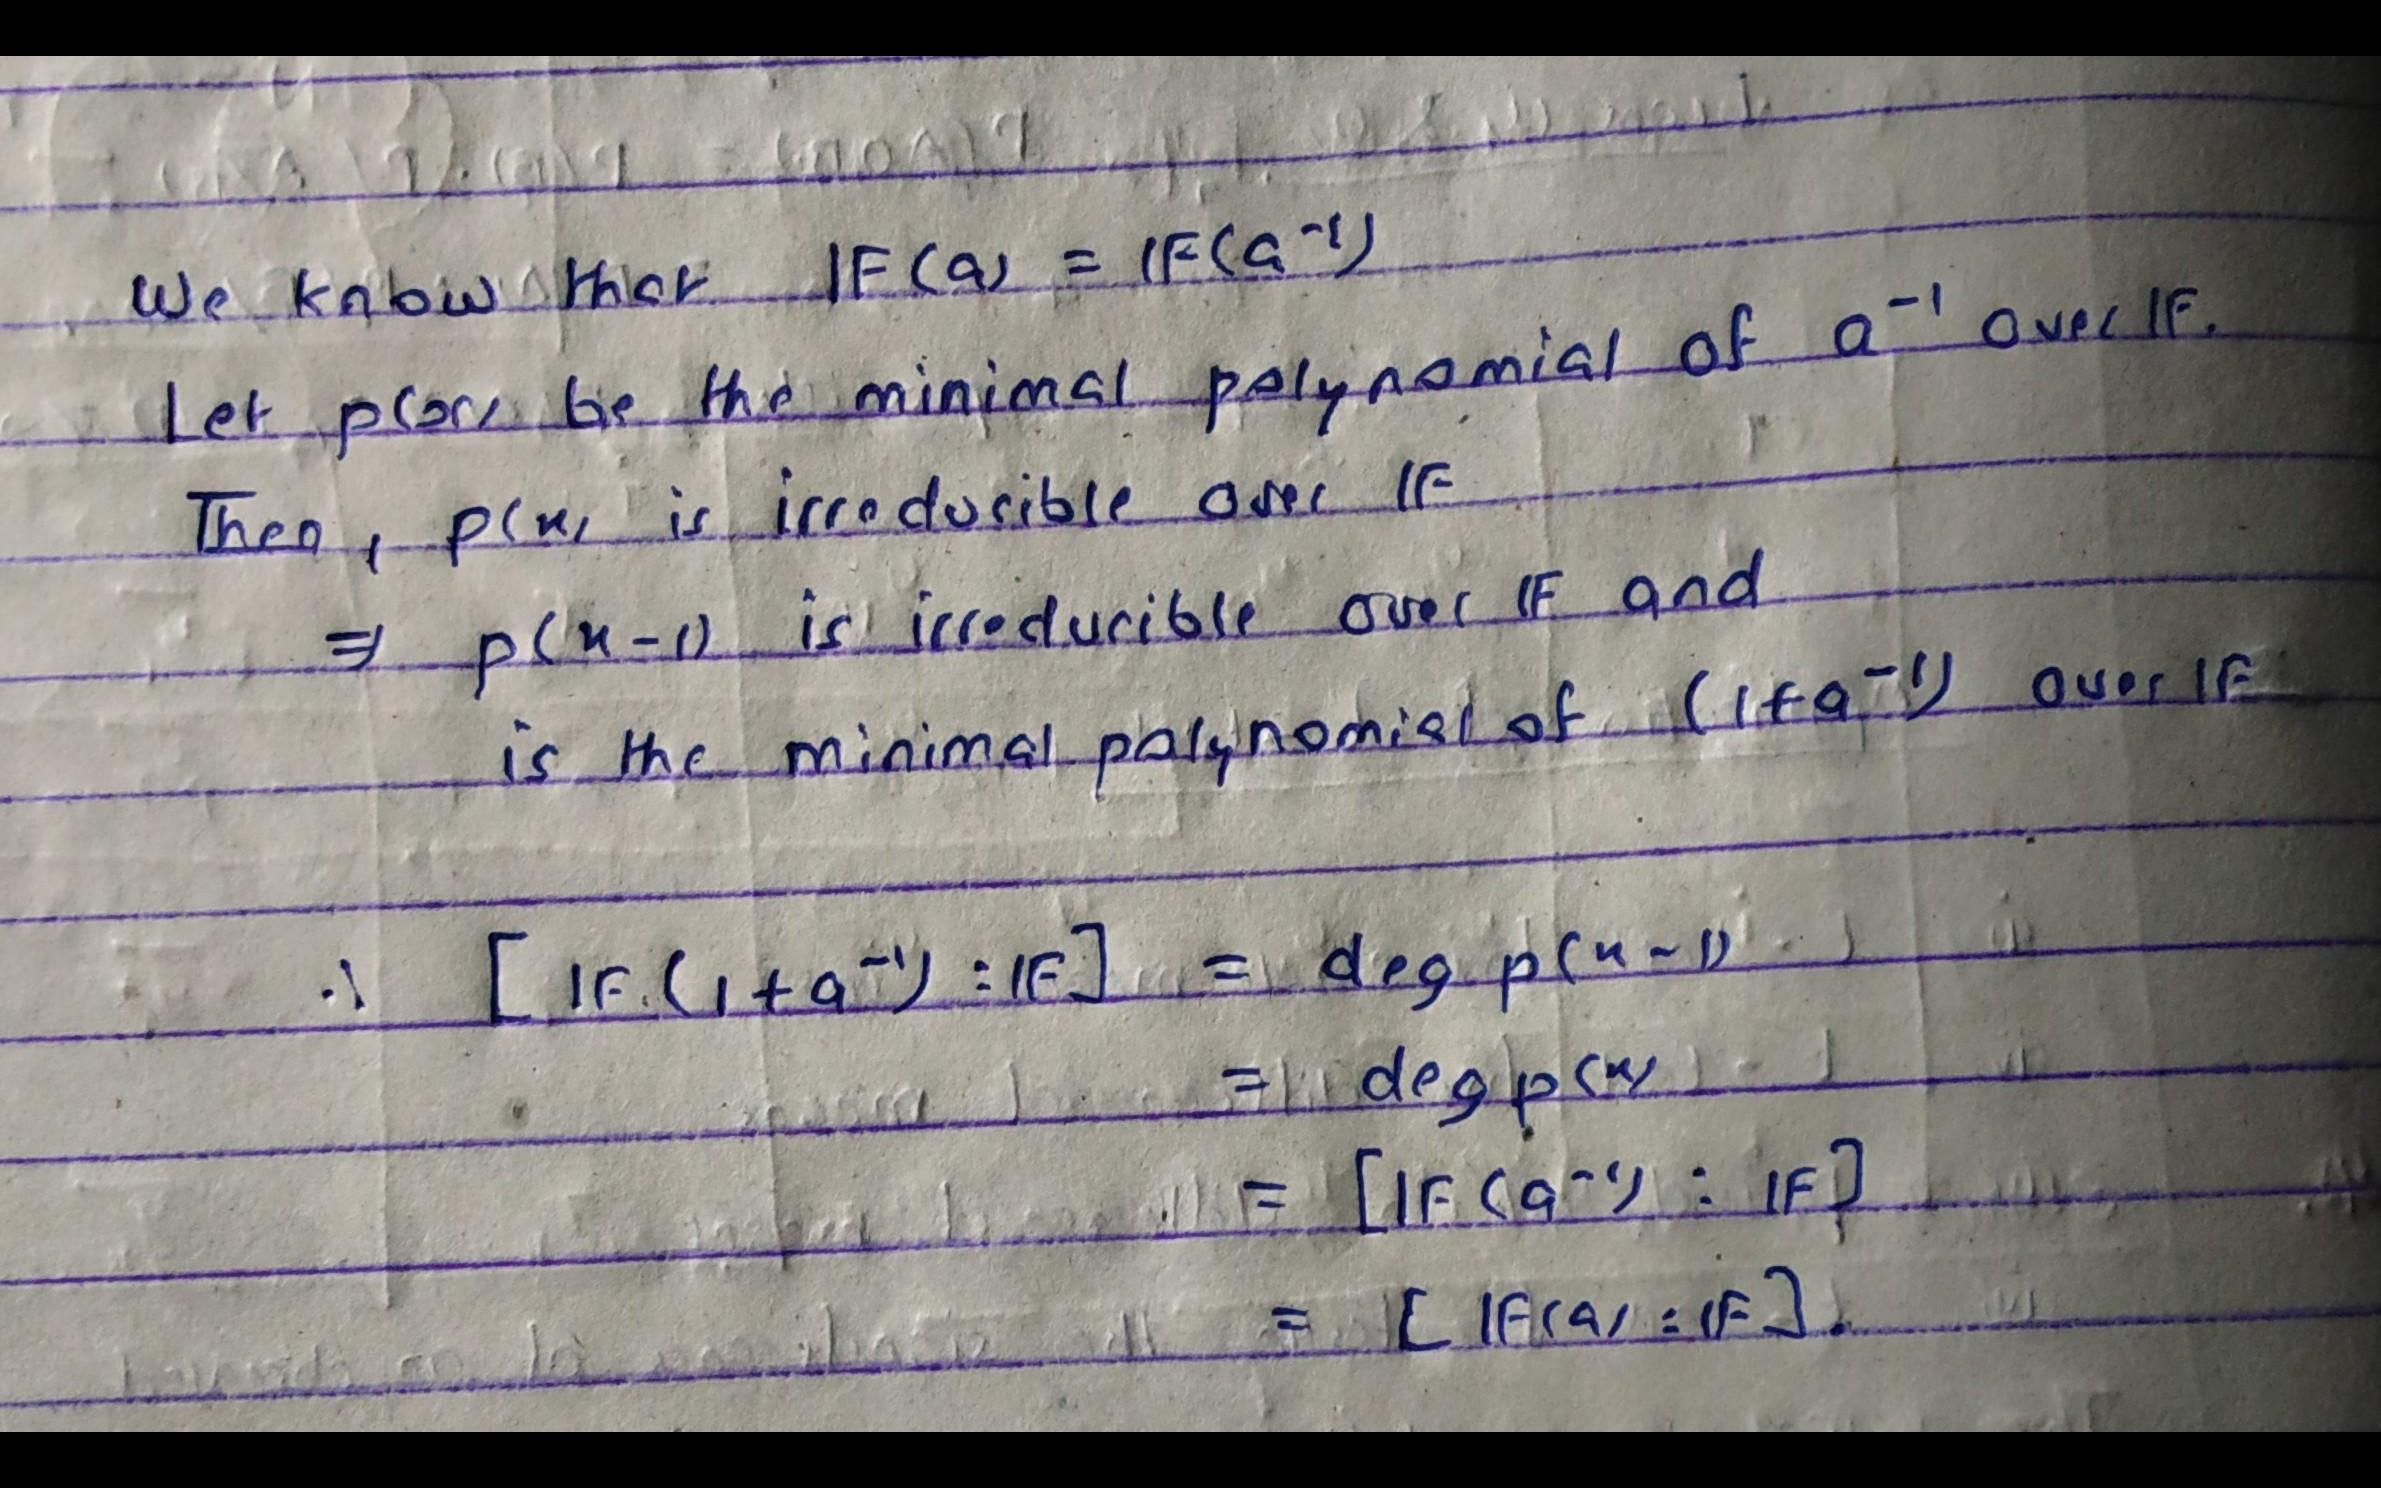 We know that IF(a) = IF(a⁻¹)
Let p(x) be the minimal polynomial of a⁻¹ over IF.
Then, p(x) is irreducible over IF
⇒ p(x-1) is irreducible over IF and
is the minimal polynomial of (1+a⁻¹) over IF
∴ [IF(1+a⁻¹) : IF] = deg p(x-1)
= deg p(x)
= [IF(a⁻¹) : IF]
= [IF(a) : IF].